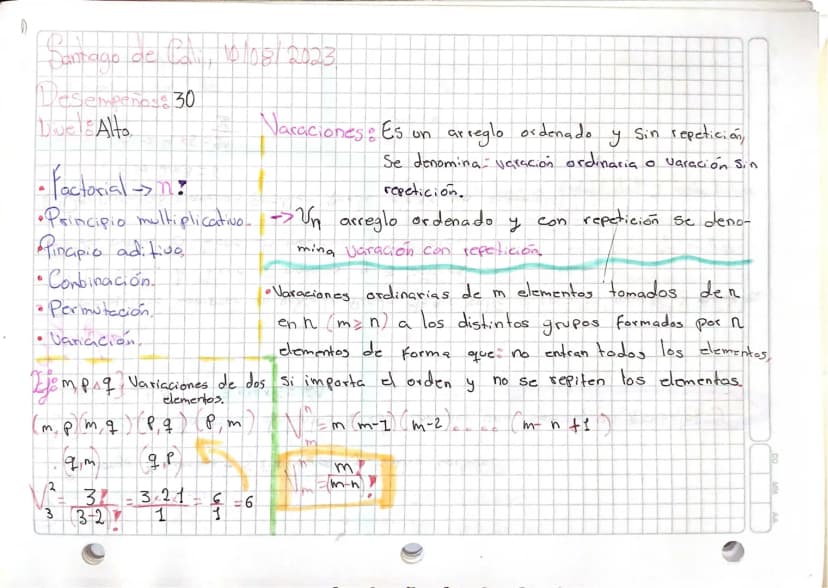 1)
Santiago de Cali, 10/08/2023
Desempeños: 30
Nivel: Alto.
• Factorial → n!
• Principio multiplicativo.
• Pincipio aditivo,
• Conbinación.
• Permutación.
• Variación.
Varaciones: Es un arreglo ordenado y sin repetición,
Se denomina: varación ordinaria o varación sin
repetición.
→ Un arreglo ordenado y con repetición se deno-
mina varación con repetición.
• Varaciones ordinarias de m elementos tomados de n
en n (m ≥ n) a los distintos grupos formados por n
elementos de forma que: no entran todos los elementos,
si importa el orden y no se repiten los elementos.
V_m^n = m (m-1) (m-2)..... (m- n +1 )
V_m^n = m! / (m-n)!
Ej: m, p ∧ q } Variaciones de dos
elementos.
(m, p) (m, q) (p, q) (p, m)
(q, m) (q, p)
V_3^2 = 3! / (3-2)! = 3·2·1 / 1 = 6 / 1 = 6